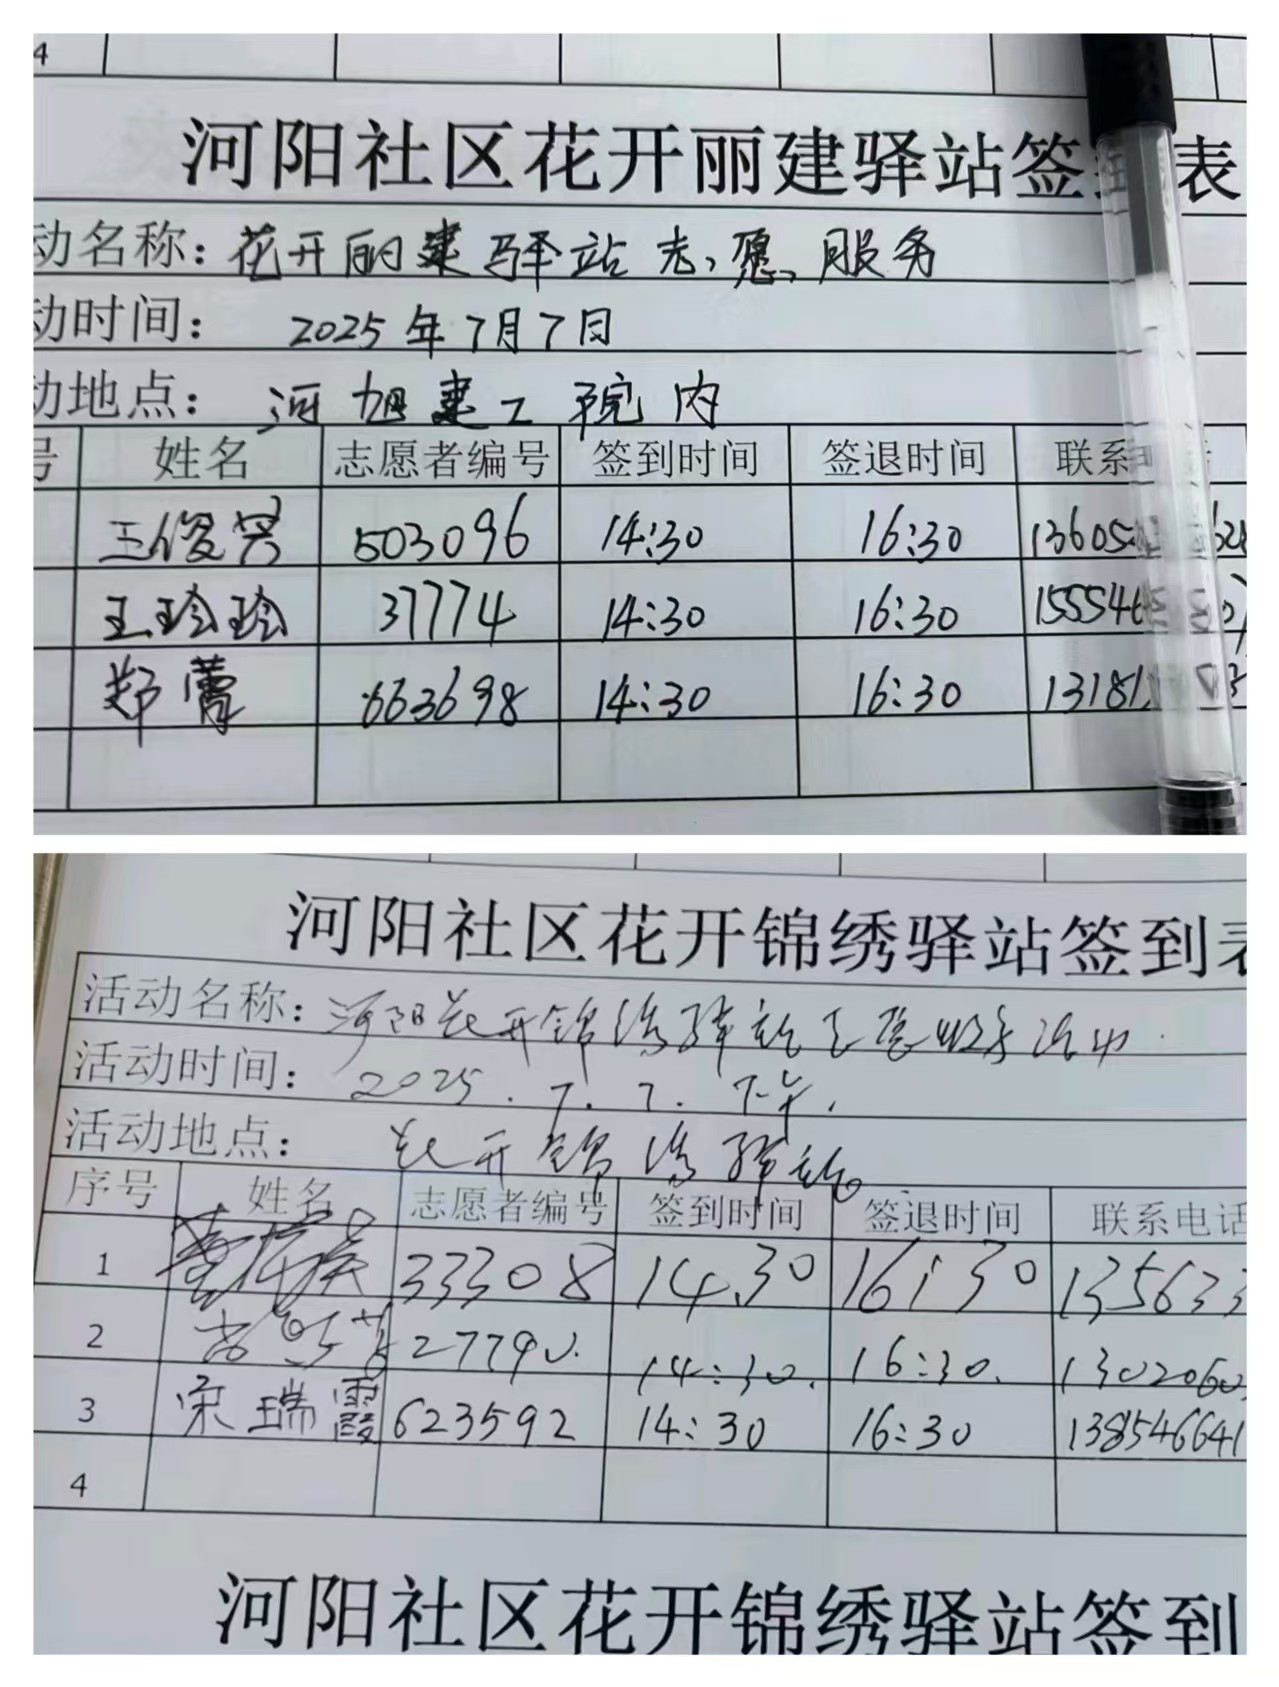 4
河阳社区花开丽建驿站签到表
动名称：花开丽建驿站志愿服务
动时间： 2025年7月7日
动地点： 河旭建工院内
号 姓名 志愿者编号 签到时间 签退时间 联系电
王俊 503096 14:30 16:30 13605
王玲玲 37774 14:30 16:30 155546
郑蕾 663698 14:30 16:30 13181
河阳社区花开锦绣驿站签到表
活动名称：河阳花开锦绣驿站志愿服务活动.
活动时间： 2025.7.7.下午.
活动地点： 花开锦绣驿站。
序号 姓名 志愿者编号 签到时间 签退时间 联系电话
1 33308 14:30 16:30 135633
2 27790. 14:30. 16:30. 1302060
3 宋瑞霞 623592 14:30 16:30 138546641
4
河阳社区花开锦绣驿站签到